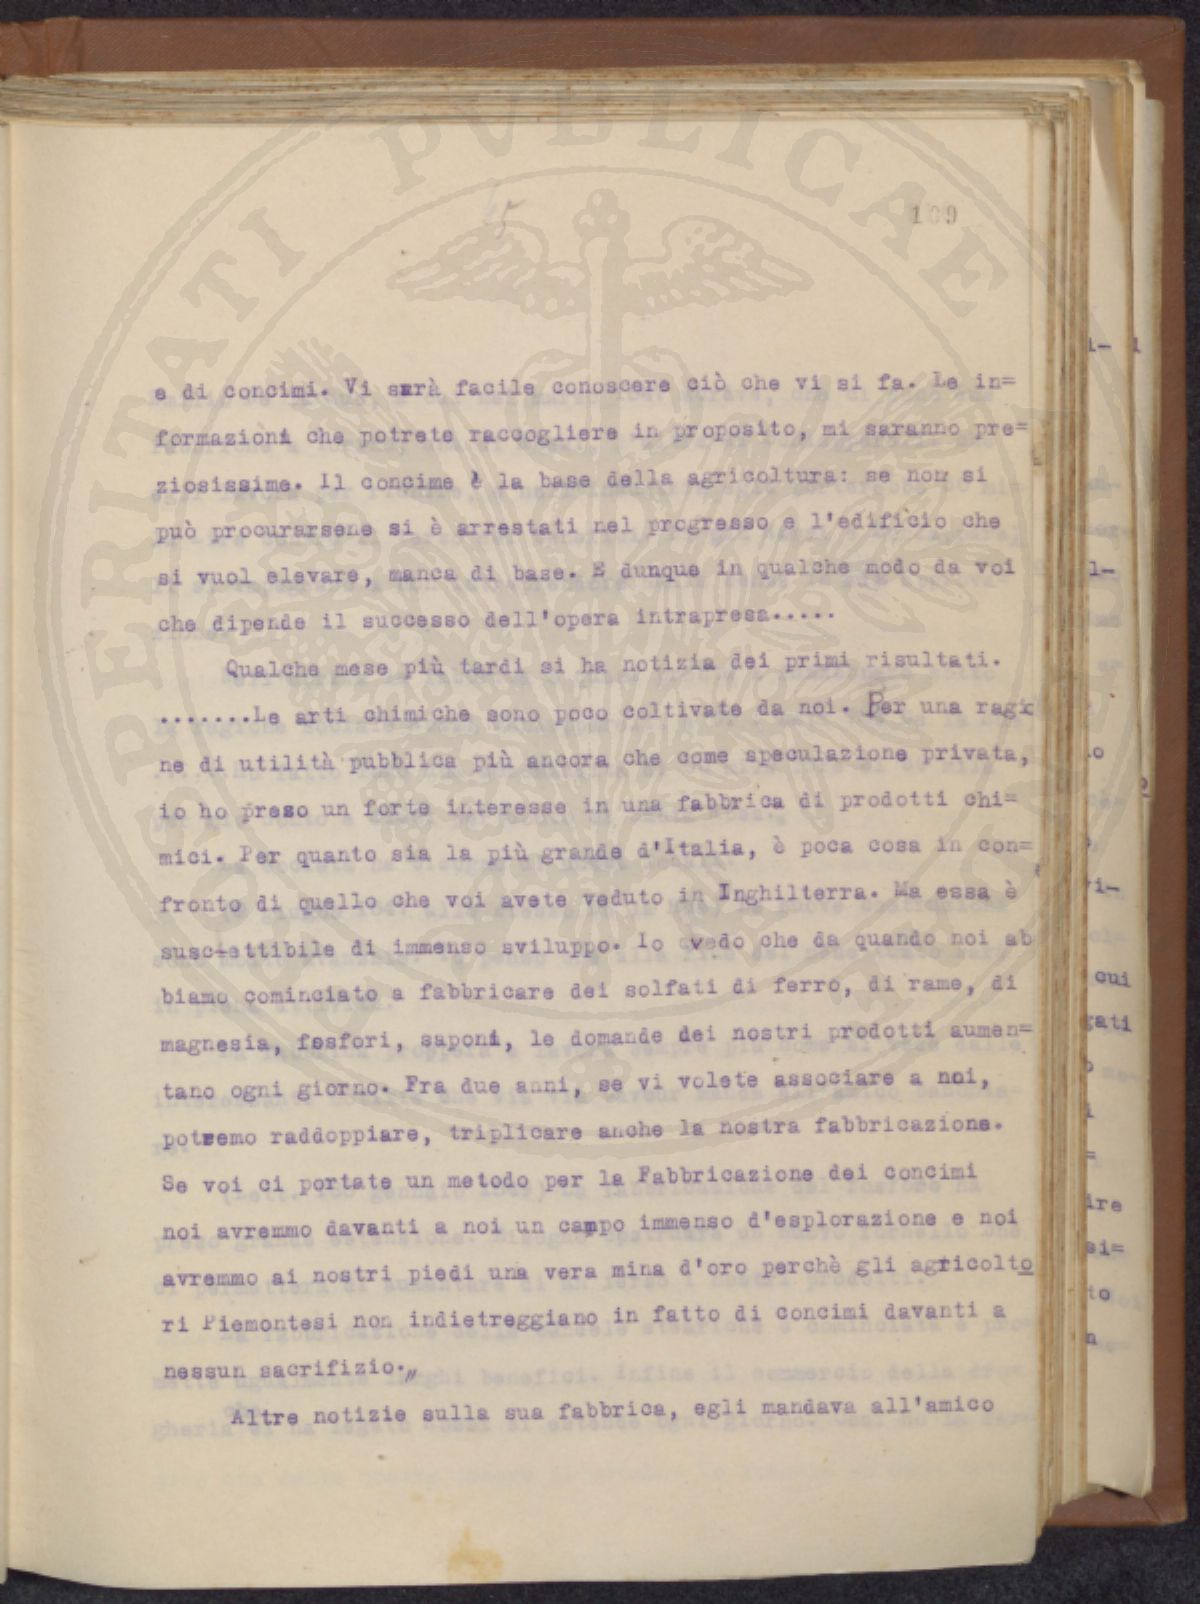 PROSPERITATI PUBLICAE
109
e di concimi. Vi sarà facile conoscere ciò che vi si fa. Le in=
formazioni che potrete raccogliere in proposito, mi saranno pre=
ziosissime. Il concime è la base della agricoltura: se non si
può procurarsene si è arrestati nel progresso e l'edificio che
si vuol elevare, manca di base. E dunque in qualche modo da voi
che dipende il successo dell'opera intrapresa.....
Qualche mese più tardi si ha notizia dei primi risultati.
.......Le arti chimiche sono poco coltivate da noi. Per una ragio
ne di utilità pubblica più ancora che come speculazione privata,
io ho preso un forte interesse in una fabbrica di prodotti chi=
mici. Per quanto sia la più grande d'Italia, è poca cosa in con=
fronto di quello che voi avete veduto in Inghilterra. Ma essa è
suscettibile di immenso sviluppo. Io vedo che da quando noi ab
biamo cominciato a fabbricare dei solfati di ferro, di rame, di
magnesia, fosfori, saponi, le domande dei nostri prodotti aumen=
tano ogni giorno. Fra due anni, se vi volete associare a noi,
potremo raddoppiare, triplicare anche la nostra fabbricazione.
Se voi ci portate un metodo per la Fabbricazione dei concimi
noi avremmo davanti a noi un campo immenso d'esplorazione e noi
avremmo ai nostri piedi una vera mina d'oro perchè gli agricolto
ri Piemontesi non indietreggiano in fatto di concimi davanti a
nessun sacrifizio.„
Altre notizie sulla sua fabbrica, egli mandava all'amico